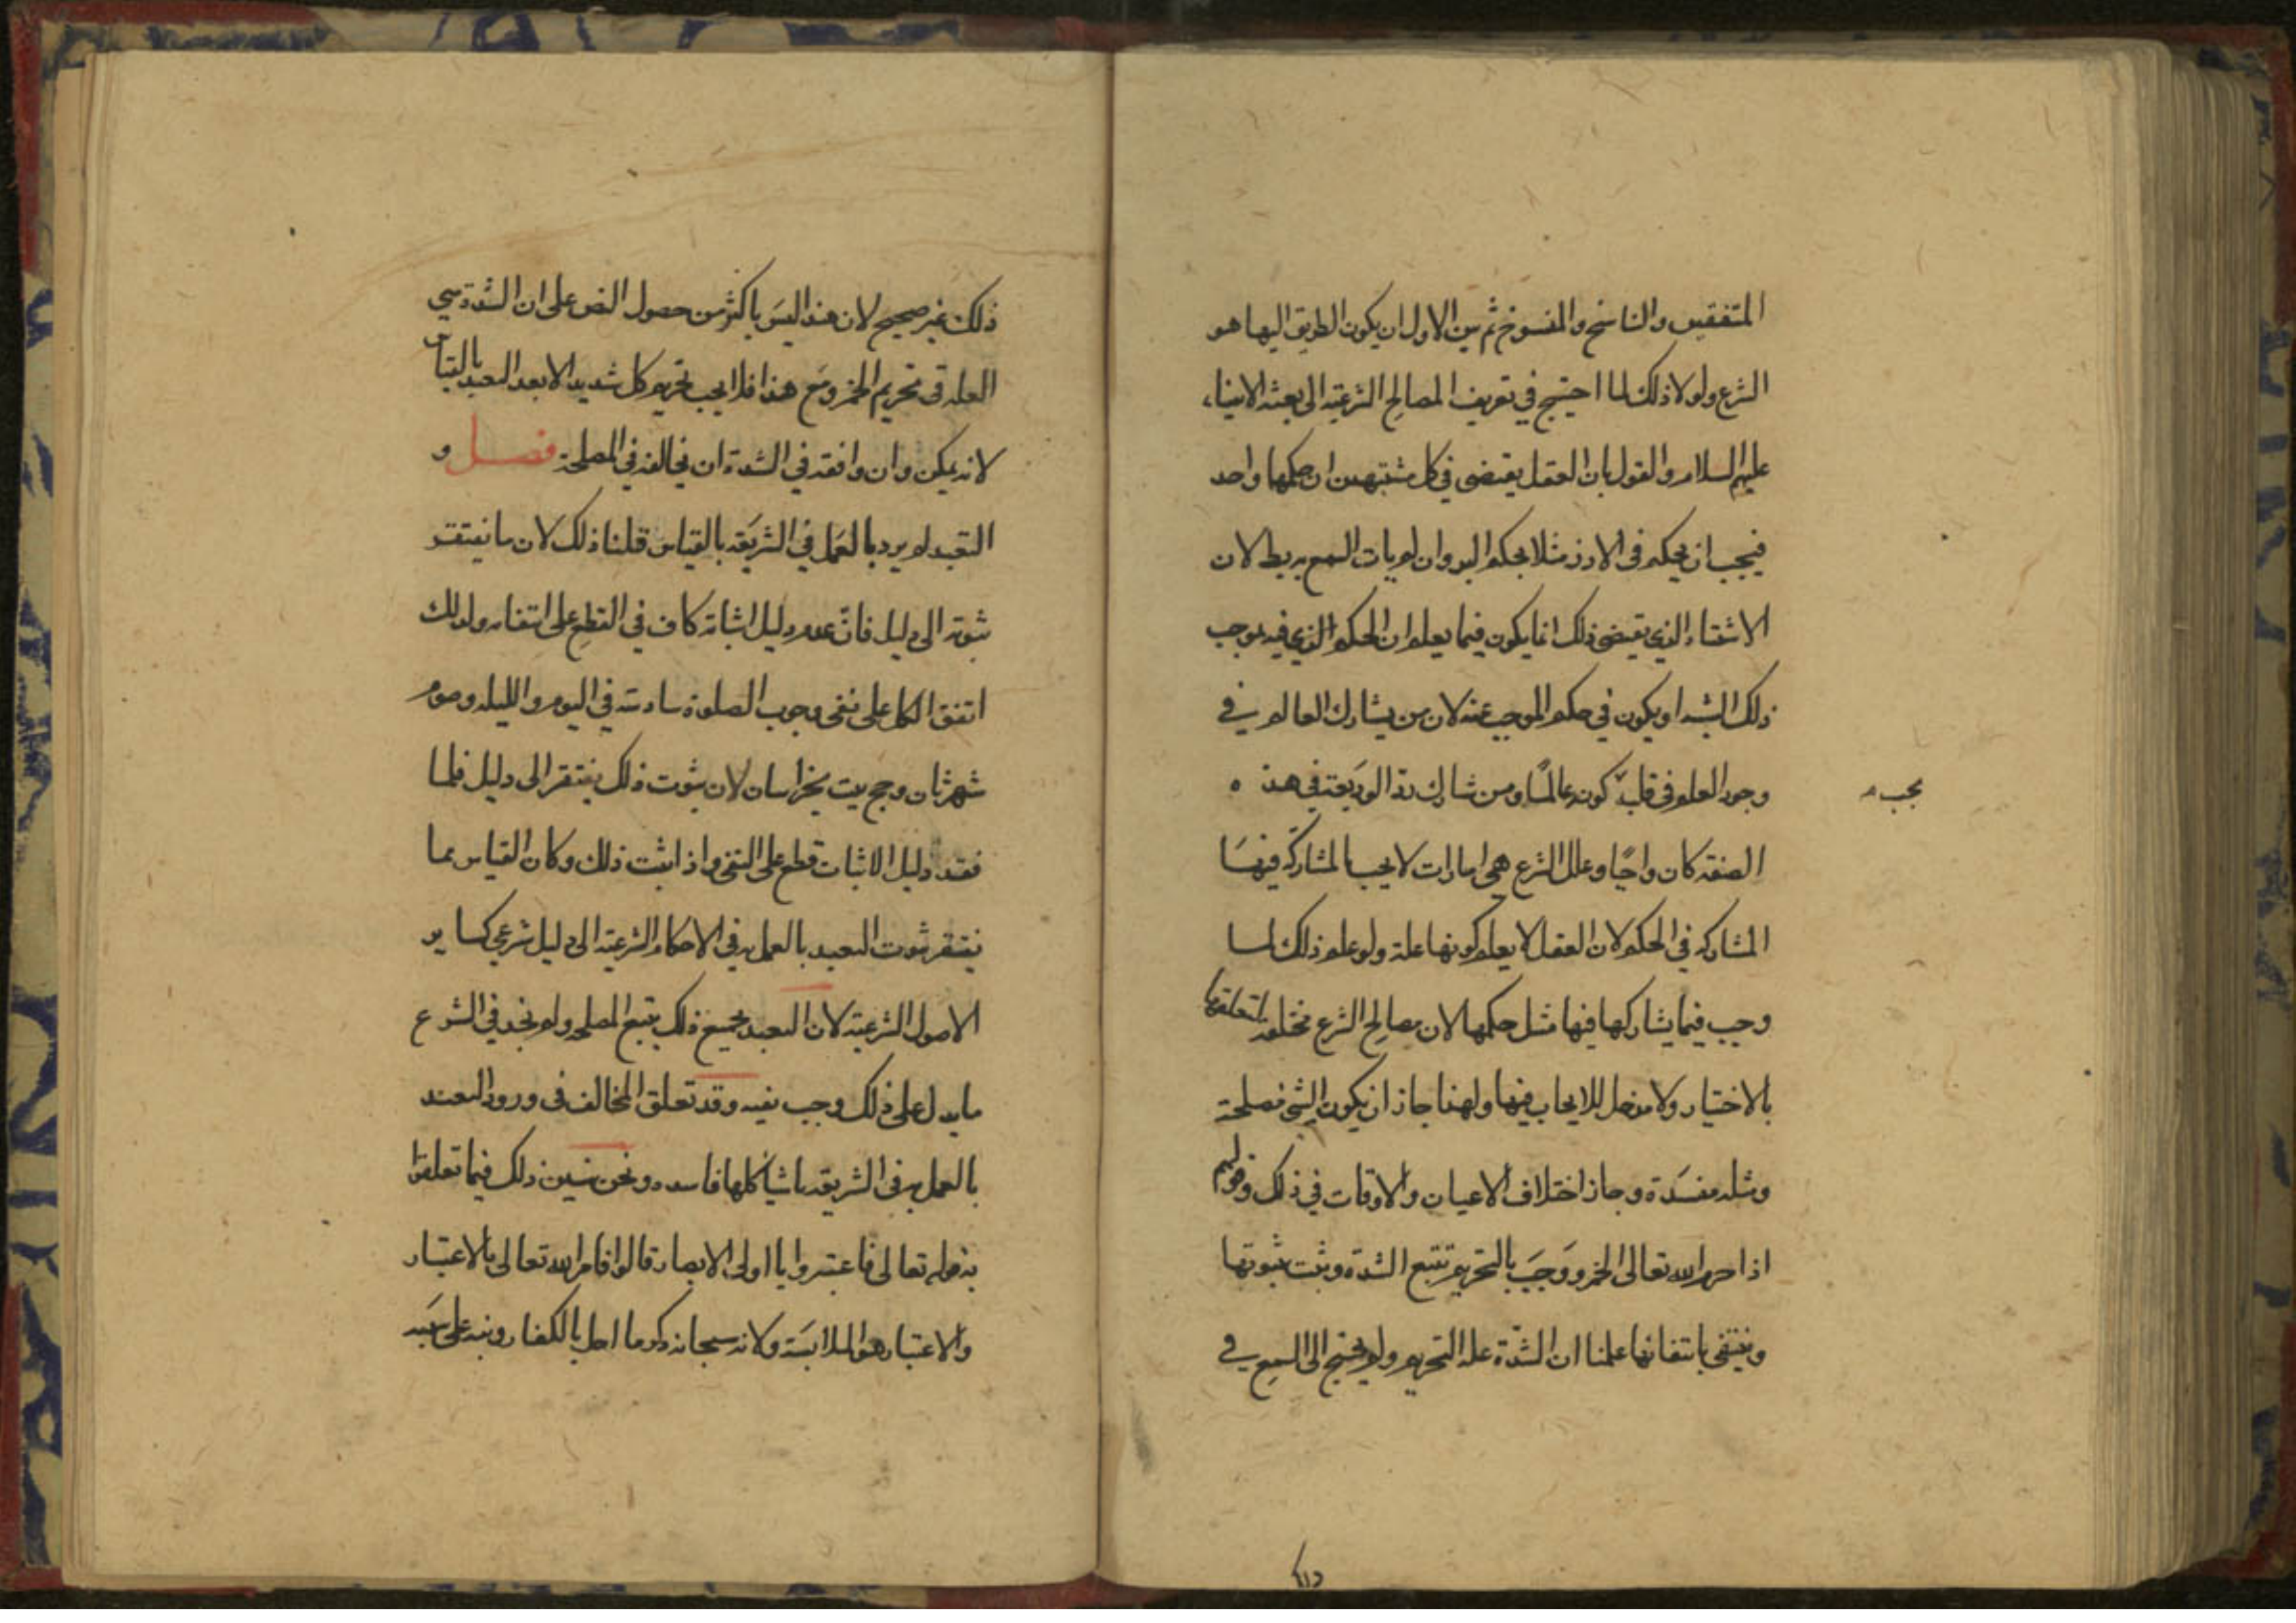 المتفقين والناسخ والمنسوخ ثم بين الاول ان يكون الطريق اليها هو
الشرع ولولا ذلك لما احتيج في تعريف المصالح الشرعية الى بعثة الانبياء
عليهم السلام والقول بان العقل يقتضى في كل مشتبهين ان حكمها واحد
فيجب ان يحكم فى الارز مثلا بحكم البر وان لم يات السمع به يبطل لان
الاشتباه الذي يقتضى ذلك انما يكون فيما يعلم ان الحكم الذي فيه موجب
ذلك الشبه او يكون في حكم الموجب عنه لان من يشارك العالم في
وجود العلم فى قلبه كونه عالمًا ومن شارك رد الوديعة في هذه
يجب
الصفة كان واجبًا وعلل الشرع هي امارات لا يجب بالمشاركة فيها
المشاركة في الحكم لان العقل لا يعلم كونها علة ولو علم ذلك لما
وجب فيما يشاركها فيها مثل حكمها لان مصالح الشرع مختلفة لتعلقها
بالاختيار ولا مدخل للايجاب فيها ولهذا جاز ان يكون الشئ مصلحة
ومثله مفسدة وجاز اختلاف الاعيان والاوقات في ذلك وقولهم
اذا حرم الله تعالى الخمر ووجب بالتحريم تتبع الشدة وثبت بثبوتها
وينتفى بانتفائها علمنا ان الشدّة علة التحريم ولم يحتج الى السمع في
ذلك
ذلك غير صحيح لان هذا ليس باكثر من حصول النص على ان الشدة هي
العلة فى تحريم الخمر ومع هذا فلا يجب تحريم كل شديد الا بعد التعبد بالقياس
لانه يمكن وان وافقه في الشدة ان يخالفه في المصلحة فصل و
التعبد لم يرد بالعمل في الشريعة بالقياس قلنا ذلك لان ما يفتقر
ثبوته الى دليل فانّ عدم دليل اثباته كاف في القطع على انتفائه ولذلك
اتفق الكل على نفى وجوب الصلوة سادسة في اليوم والليلة وصوم
شهر ثان وحج بيت بخراسان لان ثبوت ذلك يفتقر الى دليل فلما
فقد دليل الاثبات قطع على النفى واذا ثبت ذلك وكان القياس مما
يفتقر ثبوت التعبد بالعمل به في الاحكام الشرعية الى دليل شرعي كساير
الاصول الشرعية لان التعبد بجميع ذلك يتبع المصلحة ولم نجد في الشرع
ما يدل على ذلك وجب نفيه وقد تعلق المخالف فى ورود التعبد
بالعمل به فى الشريعة باشياء كلها فاسده ونحن نبين ذلك فيما تعلقوا
به قوله تعالى فاعتبروا يا اولى الابصار قالوا فامر الله تعالى بالاعتبار
والاعتبار هو ولانه سبحانه ذكر ما احل بالكفار ونبه على سببه